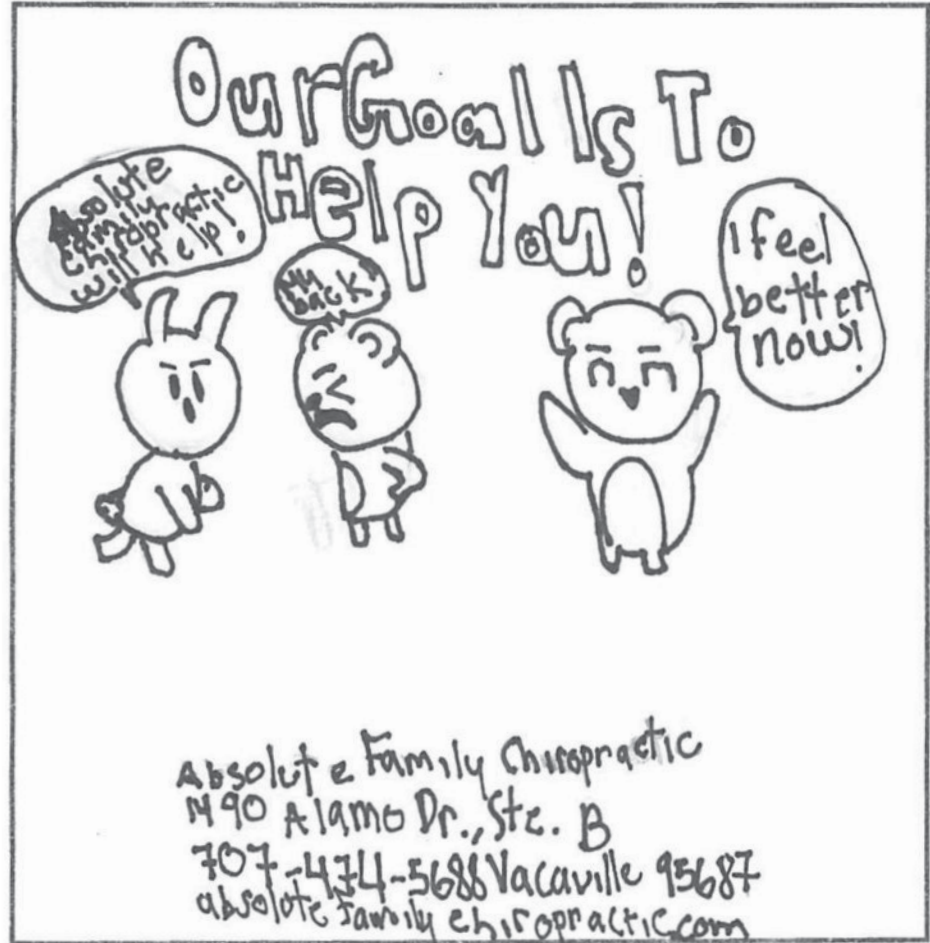 Our Goal Is To
Help You!
Absolute
family
chiropractic
will help!
My
back
I feel
better
now!
Absolute Family Chiropractic
1490 Alamo Dr., Ste. B
707-474-5688 Vacaville 95687
absolutefamilychiropractic.com